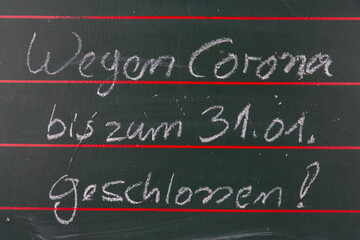 Wegen Corona
bis zum 31.01.
geschlossen!